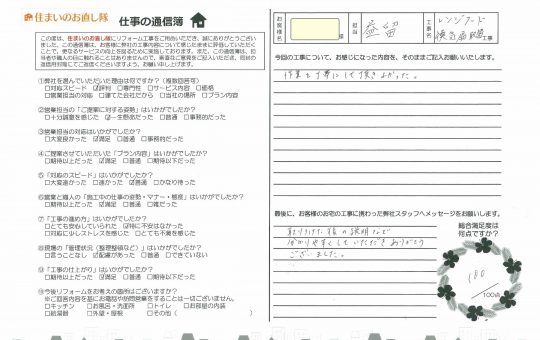 住まいのお直し隊 仕事の通信簿
この度は、住まいのお直し隊にリフォーム工事をご用命いただき、誠にありがとうございました。
①弊社を選んでいただいた理由は何ですか?(複数回答可)
□対応スピード ☑評判 □専門性 □サービス内容 □価格
□営業担当の対応 □建てた会社だから □当社の場所 □プラン内容
②営業担当の「ご提案に対する姿勢」はいかがでしたか?
□十分誠意を感じた ☑一生懸命だった □普通 □事務的だった
③営業担当の対応はいかがでしたか?
□大変良かった ☑満足 □普通 □事務的だった
④ご提案させていただいた「プラン内容」はいかがでしたか?
□期待以上だった ☑満足 □普通 □期待以下だった
⑤「対応のスピード」はいかがでしたか?
□大変速かった □速かった ☑普通 □かなり待った
⑥営業と職人の「施工中の仕事の姿勢・マナー・態度」はいかがでしたか?
□期待以上だった ☑満足 □普通 □雑だった
⑦「工事の進め方」はいかがでしたか?
□とても安心していられた ☑特に不安はなかった
□対応に少しストレスを感じた □とても不満を感じた
⑧現場の「管理状況(整理整頓など)」はいかがでしたか?
□言うことなし ☑配慮があった □普通 □できていない
⑨「工事の仕上がり」はいかがでしたか?
□期待以上だった ☑満足 □普通 □期待以下だった
⑩今後リフォームをお考えの箇所はございますか?
※ご回答内容を基にお電話や訪問営業をすることは一切ございません。
□キッチン □お風呂・洗面所 □トイレ □お部屋の内装
□給湯器 □外壁・屋根 □その他( )
お客様名
様
担当
益留
工事名
レンジフード
換気扇取替工事
今回の工事について、お感じになった内容を、そのままご記入お願いいたします。
作業も丁寧にして頂きよかった。
最後に、お客様のお宅の工事に携わった弊社スタッフへメッセージをお願いします。
取り付けた後の説明など
分かりやすくしていただきありがとう
ございました。
総合満足度は
何点ですか?
100
/100点